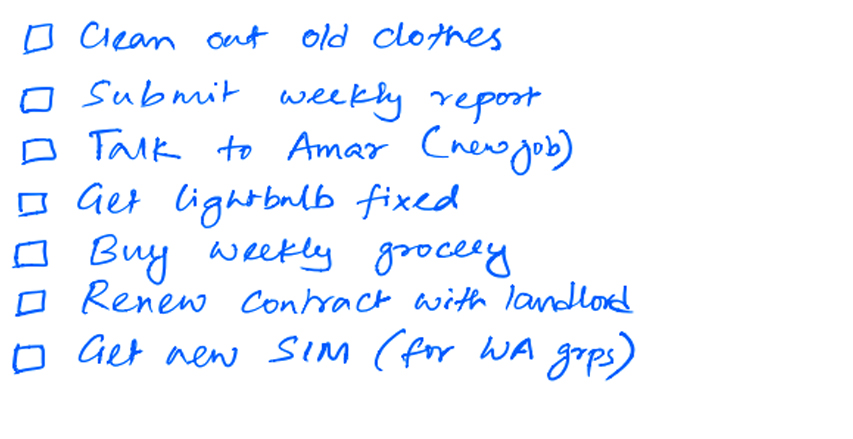 ☐ Clean out old clothes
☐ Submit weekly report
☐ Talk to Amar (new job)
☐ Get lightbulb fixed
☐ Buy weekly grocery
☐ Renew contract with landlord
☐ Get new SIM (for WA grps)